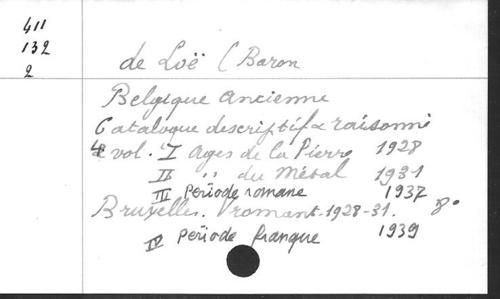 411
132
2
de Loë (Baron
Belgique ancienne
Catalogue descriptif & raisonné
4 vol. I Ages de la Pierre 1928
II " du Métal 1931
III Période romane 1937
Bruxelles. 1928-31. 8°
IV Période franque 1939